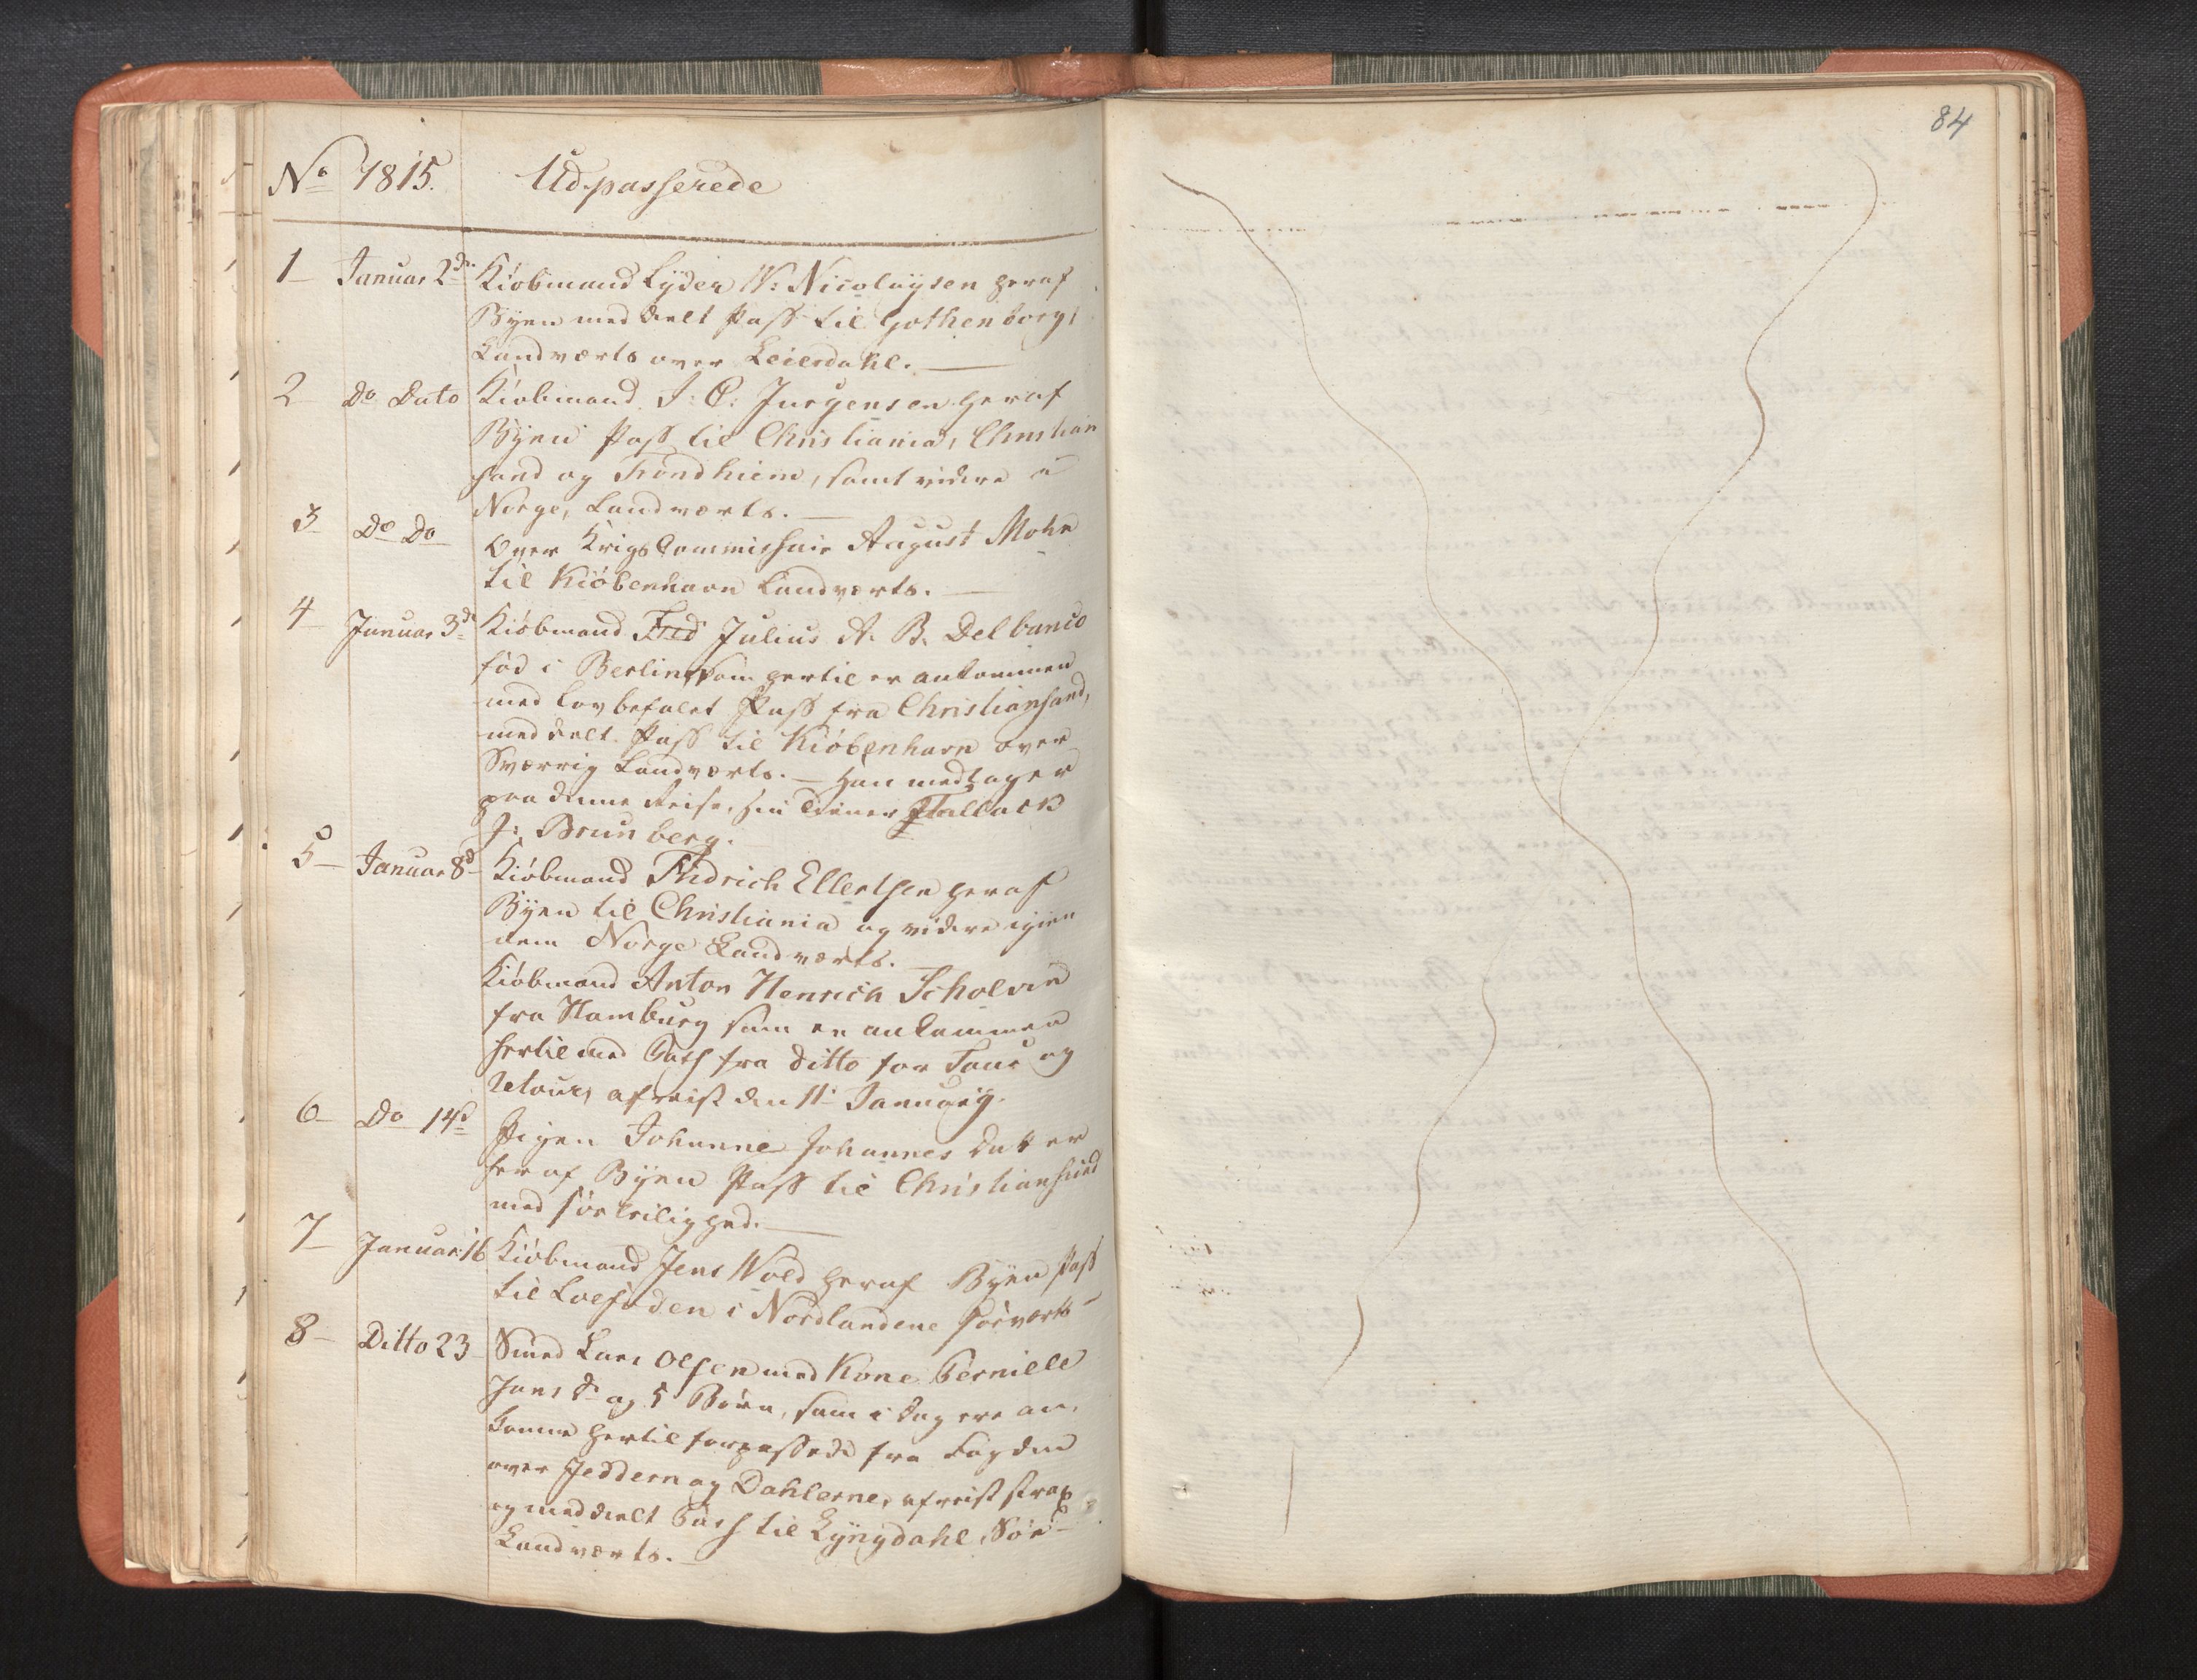 84
No 1815. Udpasserede
1 Januar 2de Kiöbmand Lyder W: Nicolaysen heraf
Byen meddeelt Pass til Gothenborg,
Landværts over Leierdahl.
2 Do Dato Kiöbmand J: C: Jurgensen heraf
Byen Pass til Christiania, Christian
sand og Trondhiem, samt videre i
Norge, Landværts.
3 Do Do Over Krigs Commissair August Mohr
til Kiöbenhavn Landværts.
4 Januar 3de Kiöbmand Fred Julius A. B. Delbanco
föd i Berlin, som hertil er ankommen
med lovbefalet Pass fra Christiansand,
meddeelt Pass til Kiöbenhavn over
Sværrig Landværts. Han medtager
paa denne Reise, sin Tiener
J: Brunberg.
5 Januar 8d Kiöbmand Fridrich Ellertsen heraf
Byen til Christiania og videre igien
nem Norge Landværts.
Kiöbmand Anton Henrich Scholvin
fra Hamburg som er ankommen
hertil med Pass fra ditto for Tour og
retour, afreist den 11te January.
6 Do 14d Pigen Johanne Johannes Datter
her af Byen Pass til Christiansund
med söe leilighed.
7 Januar 16 Kiöbmand Jens Wold heraf Byen Pass
til Loefoden i Nordlandene söeværts
8 Ditto 23 Smed Lars Olsen med Kone Pernille
Jans d og 5 Börn, som i dag ere an,
komne hertil forpassede fra Fogden
over Jeddern og Dahlerne, afreist strax
og meddeelt Pass til Lyngdahl, Söe
Landværts.